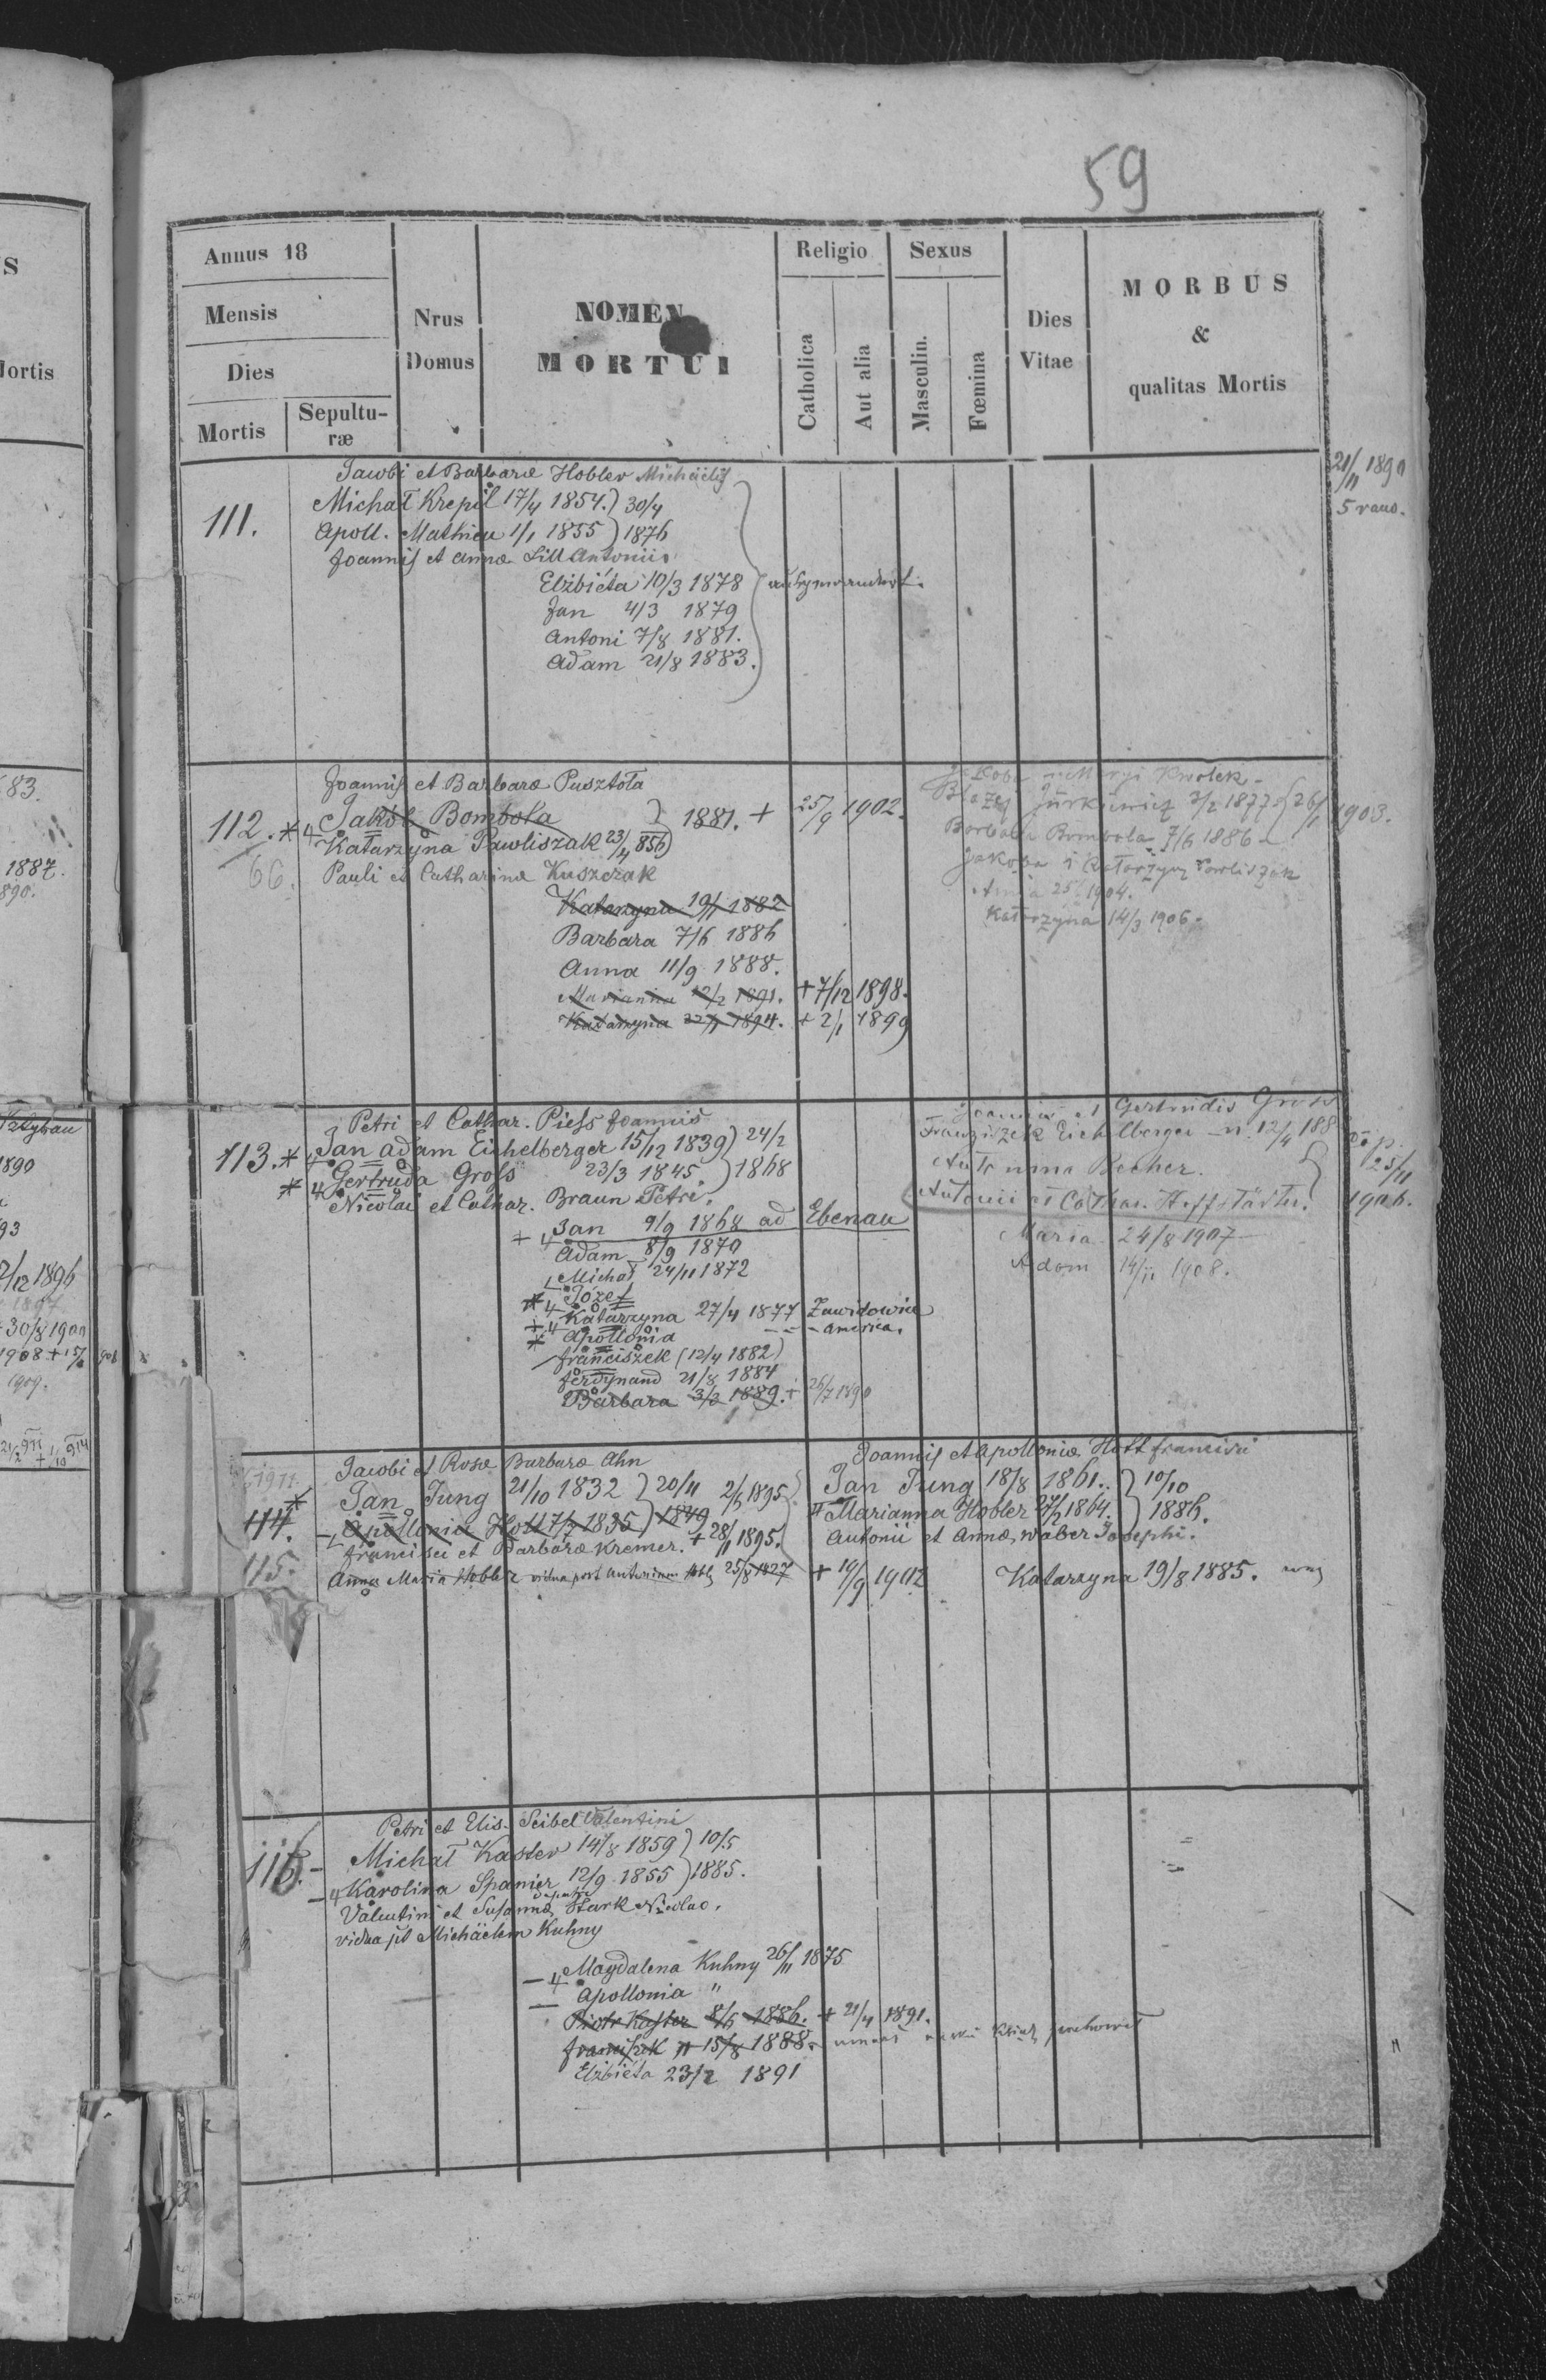 59
Annus 18
Mensis
Dies
Mortis
Sepulturæ
Nrus Domus
NOMEN MORTUI
Religio
Catholica
Aut alia
Sexus
Masculin.
Fœmina
Dies Vitae
MORBUS & qualitas Mortis
21/11 1890
Jacobi et Barbaræ Hobler Michäelis
111. Michał Krepil 17/4 1854. 30/4
Apoll. Mathieu 1/1 1855 1876
Joannis et Annæ Lill Antonii
Elżbiéta 10/3 1878
Jan 4/3 1879
Antoni 7/8 1881.
Adam 21/8 1883.
Joannis et Barbaræ Pusztoła
112. Jakób Bombola 1881. + 25/9 1902.
Katarzyna Pawliszak 23/4 856
66. Pauli et Catharinæ Kuszczak
Katarzyna 19/1 1882
Barbara 7/6 1886
Anna 11/9 1888.
Marianna 12/2 1891. + 7/12 1898.
Katarzyna 22/1 1894. + 2/1 1899
Jakoba i Maryi Kwolek
Błażej Jurkiewicz 3/2 1877 26/1 1903.
Barbara Bombola 7/6 1886
Jakoba i Katarzyny Pawliszak
1904.
Katarzyna 14/3 1906.
Petri et Cathar. Piess Joannis
113. Jan Adam Eichelberger 15/12 1839 24/2
Gertruda Gross 23/3 1845. 1868
Nicolai et Cathar. Braun Petri.
Jan 9/9 1868 ad Ebenau
Adam 8/9 1870
Michał 24/11 1872
Józef
Katarzyna 27/4 1877 Zawidowice
Apollonia - - - America.
Franciszek (12/4 1882)
Ferdynand 21/8 1884
Barbara 3/3 1889. + 26/7 1890
Joannis et Gertrudis Gross
Franziszek Eichelberger n. 12/4 188
Becher. 25/11
Antonii et Cathar. Hoffstäter. 1906.
Maria 24/8 1907
Adam 14/11 1908.
1911.
Jacobi et Rosæ Barbaræ Ahn
114. Jan Jung 21/10 1832 20/11 2/5 1895
Apollonia Hott 7/7 1835 1849 + 28/11 1895.
115. Francisci et Barbaræ Kremer.
Anna Maria Hobler vidua post Antonium 25/8 1827 + 19/9 1902
Joannis et Apolloniæ Hott Francisci
Jan Jung 18/8 1861. 10/10
Marianna Hobler 27/2 1864. 1886.
Antonii et Annæ Waber Josephi.
Katarzyna 19/8 1885.
Petri et Elis. Seibel Valentini
116. Michał Kaster 14/8 1859 10/5
Karolina Spanier 12/9 1855 1885.
Valentini et Susannæ Stark Nicolao.
vidua pt Michäelem Kuhny
Magdalena Kuhny 26/11 1875
Apollonia "
Piotr Kaster 8/5 1886. + 21/4 1891.
Franciszek 15/8 1888.
Elżbiéta 23/2 1891